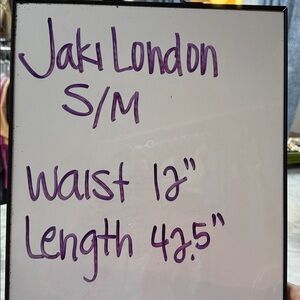 Jaki London
S/M
Waist 12"
Length 42.5"